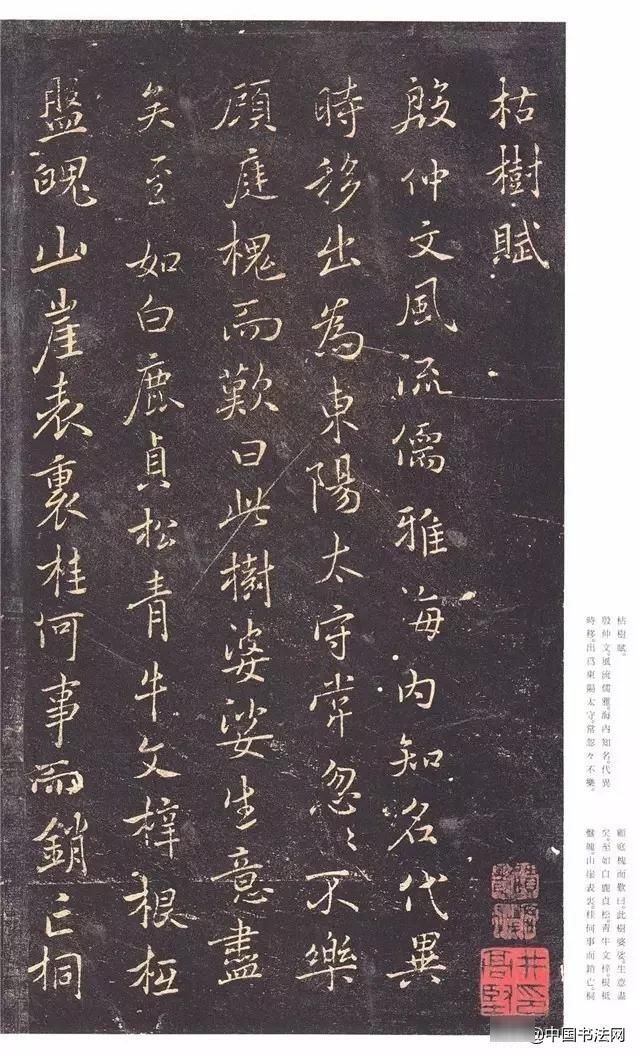 枯樹賦
殷仲文風流儒雅海內知名代異
時移出為東陽太守常忽〻不樂
顧庭槐而歎曰此樹婆娑生意盡
矣至如白鹿貞松青牛文梓根柢
盤魄山崖表裏桂何事而銷亡桐
枯樹賦。
殷仲文。風流儒雅。海內知名。代異
時移。出爲東陽太守。常忽々不樂。
顧庭槐而歎曰。此樹婆娑。生意盡
矣。至如白鹿貞松。青牛文梓。根柢
盤魄。山崖表裏。桂何事而銷亡。桐
@中国书法网